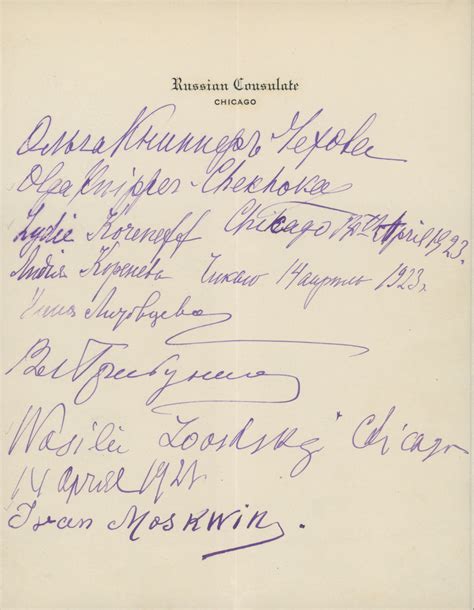 Russian Consulate
CHICAGO
Ольга Книпперъ-Чехова
Olga Knipper-Chekhova
Lydie Koreneff Chicago April 1923.
Лидія Коренева Чикаго 14 апрѣль 1923 г.
Wasili Chicago
14 april
Ivan Moskwin.